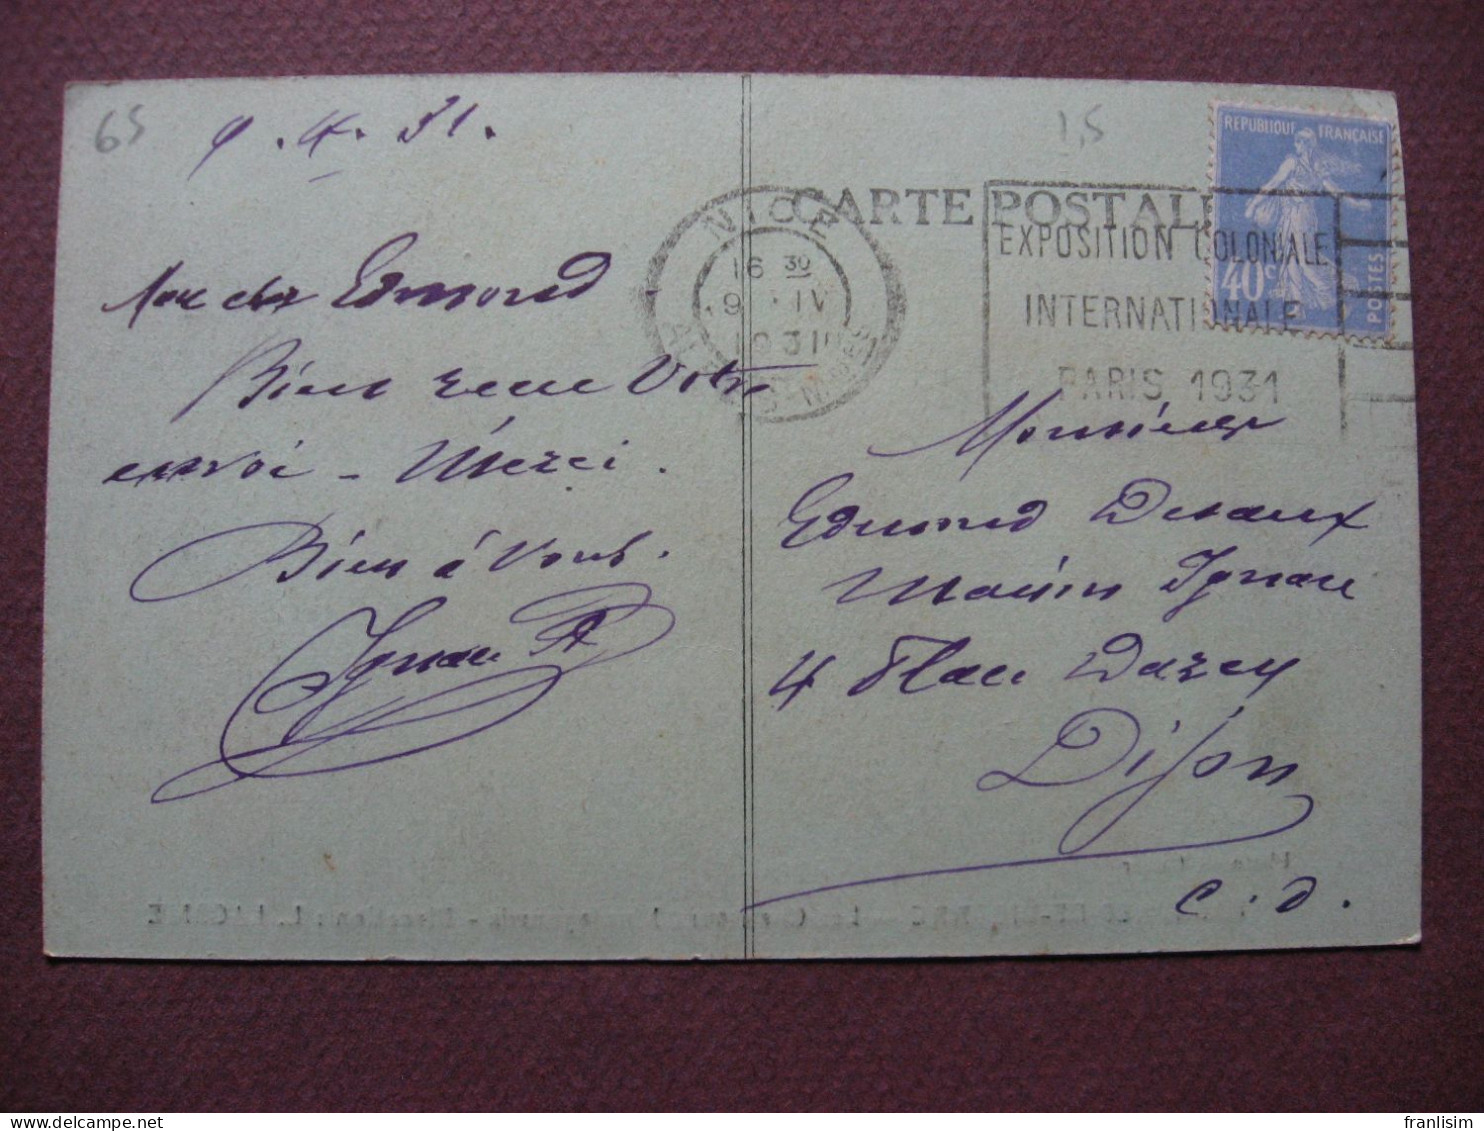 65
9.4.31.
Mon cher Edmond.
Bien reçu Votre
envoi - Merci.
Bien à Vous.
Ignace
1,5
CARTE POSTALE
REPUBLIQUE FRANÇAISE
40c
POSTES
NICE
16 30
9 - IV
1931
EXPOSITION COLONIALE
INTERNATIONALE
PARIS 1931
Monsieur
Edmond Desaux
Maison Ignace
4 Place Darcy
Dijon
C. d.
franlisim